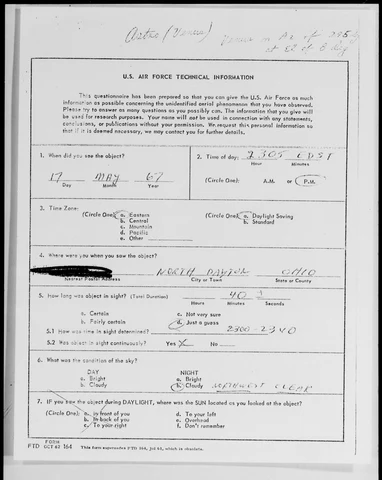 Astro (Venus)
U.S. AIR FORCE TECHNICAL INFORMATION
This questionnaire has been prepared so that you can give the U.S. Air Force as much
information as possible concerning the unidentified aerial phenomenon that you have observed.
Please try to answer as many questions as you possibly can. The information that you give will
be used for research purposes. Your name will not be used in connection with any statements,
conclusions, or publications without your permission. We request this personal information so
that if it is deemed necessary, we may contact you for further details.
1. When did you see the object?
17 MAY 67
Day Month Year
2. Time of day: 2305 CDST
Hour Minutes
(Circle One): A.M. or P.M.
3. Time Zone:
(Circle One): a. Eastern
b. Central
c. Mountain
d. Pacific
e. Other
(Circle One): a. Daylight Saving
b. Standard
4. Where were you when you saw the object?
NORTH DAYTON OHIO
Nearest Postal Address City or Town State or County
5. How long was object in sight? (Total Duration) 40
Hours Minutes Seconds
a. Certain c. Not very sure
b. Fairly certain d. Just a guess
5.1 How was time in sight determined? 2300-2340
5.2 Was object in sight continuously? Yes X No
6. What was the condition of the sky?
DAY NIGHT
a. Bright a. Bright
b. Cloudy b. Cloudy NORTHWEST CLEAR
7. IF you saw the object during DAYLIGHT, where was the SUN located as you looked at the object?
(Circle One): a. In front of you d. To your left
b. In back of you e. Overhead
c. To your right f. Don't remember
FORM
FTD OCT 62 164 This form supersedes FTD 164, Jul 61, which is obsolete.